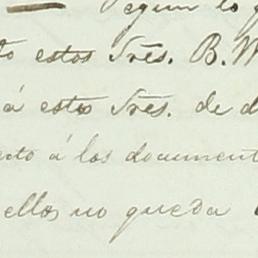 Segun lo
to estos Sres. B. W
á estos Sres. de d
ecto á los document
ellos no queda